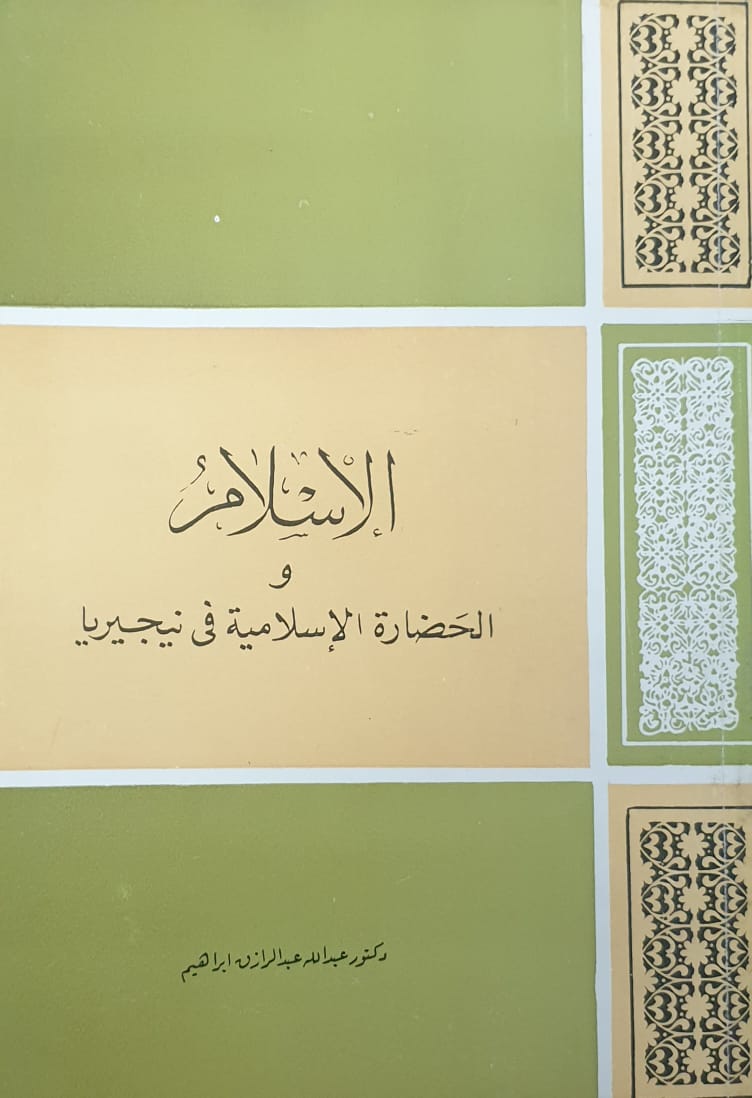 الإسْلامُ
و
الحَضارة الإسلامية فى نيجيريا
دكتور عبدالله عبدالرازق ابراهيم